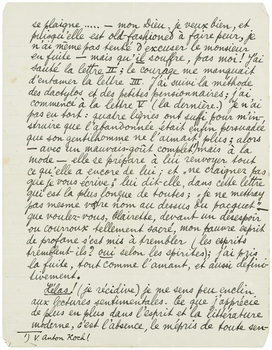 se plaigne ..... — mon Dieu, je veux bien, et
puisqu'elle est old-fashioned à faire peur, je
n'ai même pas tenté d'excuser le monsieur
en fuite — mais qu'il souffre, pas moi! J'ai
sauté la lettre II; le courage me manquait
d'entamer la lettre III. J'ai suivi la méthode
des dactylos et des petites pensionnaires; j'ai
commencé à la lettre V (la dernière.) Je n'ai
pas eu tort: quatre lignes ont suffi pour m'in-
struire que l'abandonnée était enfin persuadée
que son gentilhomme ne l'aimait plus; alors
— avec un mauvais goût complet, mais à la
mode — elle se prépare à lui renvoyer tout
ce qu'elle a encore de lui; et „ne craignez pas
que je vous écrive", lui dit-elle, dans cette lettre
qui est la plus longue de toutes; „je ne mettrai
pas même votre nom au dessus du pacquet"—
que voulez-vous, Clairette, devant un désespoir
ou courroux tellement sacré, mon pauvre esprit
de profane s'est mis à trembler (les esprits
tremblent-ils? oui selon les spirites); j'ai pris
la fuite, tout comme l'amant, et aussi défini-
tivement.
Lilas! (je récidive) je me sens peu enclin
aux lectures sentimentales. Ce que j'apprécie
de plus en plus dans l'esprit et la littérature
moderne, c'est l'absence, le mépris de toute sen-
1) V. Anton Kock!